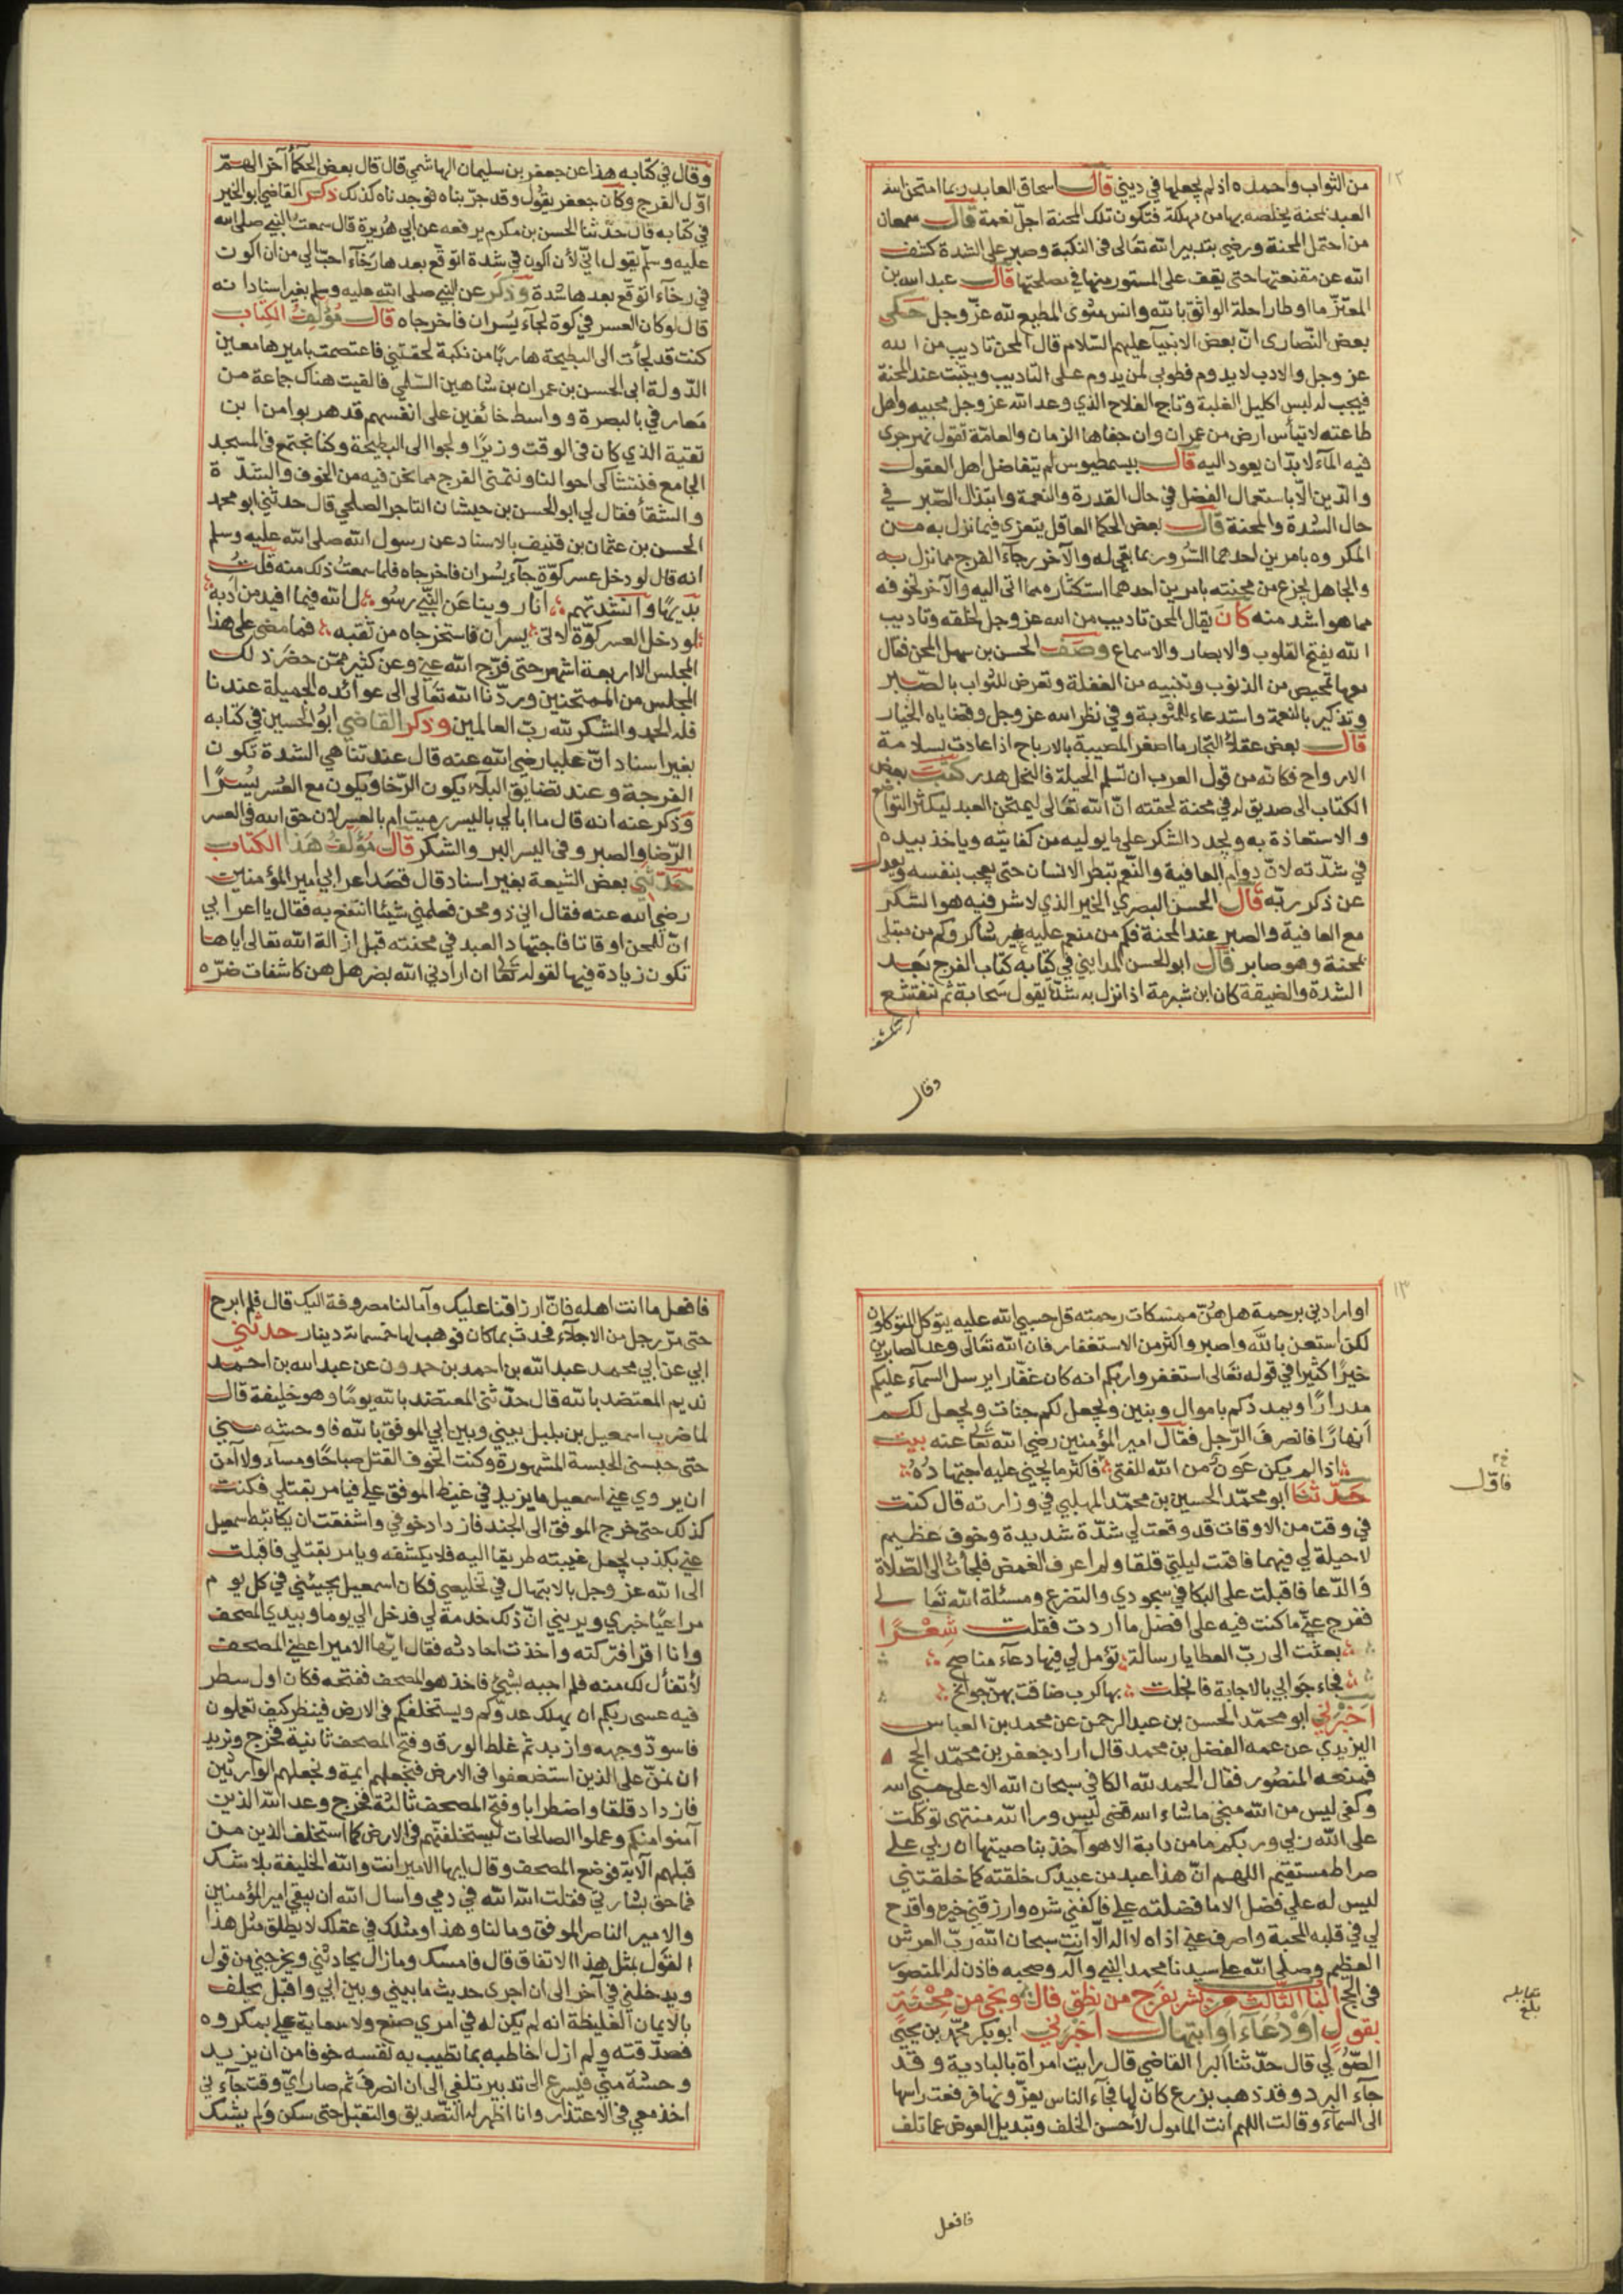 من الثواب واحمده اذ لم يجعلها في ديني قال اسحاق العابد ربما امتحن الله
العبد بمحنة يخلصه بها من مهلكة فتكون تلك المحنة اجلّ نعمة قال سمعان
من احتمل المحنة ورضي بتدبير الله تعالى فى النكبة وصبر على الشدة كشف
الله عن منفعتها حتى يقف على المستور منها في مصلحتها قال عبد الله بن
المعتز ما اوطا راحلة الواثق بالله وانس مثوى المطيع لله عزّ وجل حكى
بعض النصارى انّ بعض الانبيآ عليهم السّلام قال المحن تاديب من الله
عز وجل والادب لا يدوم فطوبى لمن يدوم على التاديب ويتثبت عند المحنة
فيجب له لبس اكليل الغلبة وتاج الفلاح الذي وعد الله عز وجل محبيه واهل
طاعته لا تيأس ارض من عمران وان جفاها الزمان والعامّة تقول نهر جرى
فيه المآء لا بدّ ان يعود اليه قال بيسمطيوس لم يتفاضل اهل العقول
والدّين الّا باستعمال الفضل في حال القدرة والنعمة وابتذال الصّبر في
حال الشدة والمحنة قال بعض الحكما العاقل يتعزي فيما نزل به من
المكروه بامرين احدهما السّرور بما بقي له والآخر رجآء الفرج مما نزل به
والجاهل يجزع من محنته بامرين احدهما استكثاره مما اتى اليه والآخر تخوفه
مما هو اشد منه كانَ يقال المحن تاديب من الله عز وجل لخلقه وتاديب
الله يفتح القلوب والابصار والاسماع وصف الحسن بن سهل المحن فقال
فيها تمحيص من الذنوب وتنبيه من الغفلة وتعرض للثواب بالصّبر
وتذكير بالنعمة واستدعاء للمثوبة وفي نظر الله عز وجل وقضاياه الخيار
قال بعض عقلآء التجار ما اصغر المصيبة بالارباح اذا عادت بسلامة
الارواح فكانه من قول العرب ان تسلم الجلة فالنخل هدر كتبَ بعض
الكتاب الى صديق له في محنة لحقته انّ الله تعالى ليمتحن العبد ليكثر التواضع
والاستعاذة به ويجدد الشكر على ما يوليه من كفايته وياخذ بيده
في شدّته لانّ دوام العافية والنّعم تبطر الانسان حتى يعجب بنفسه ويعدل
عن ذكر ربّه قال الحسن البصري الخير الذي لا شر فيه هو الشكر
مع العافية والصبر عند المحنة فكم من منعم عليه غير شاكر وكم من مبتلى
بمحنة وهو صابر قال ابو الحسن المدايني في كتابه كتاب الفرج بعد
الشدة والضيقة كان ابن شبرمة اذا نزل به شدة يقول سحابة ثم تنقشع
وقال
وقال في كتابه هذا عن جعفر بن سليمان الهاشمي قال قال بعض الحكمآء آخر الهمّ
اوّل الفرج وكان جعفر يقول وقد جرّبناه فوجدناه كذلك ذكر القاضي ابو الحسين
في كتابه قال حدّثنا الحسن بن مكرم يرفعه عن ابي هريرة قال سمعت النبي صلى الله
عليه وسلم يقول انّي لأن اكون في شدة اتوقع بعدها رخآء احبّ الي من ان اكون
في رخآء اتوقع بعدها شدة وذكر عن النبي صلى الله عليه وسلم بغير اسناد انه
قال لو كان العسر في كوة لجآء يسران فاخرجاه قال مؤلف الكتاب
كنت قد لجأت الى البطيحة هاربًا من نكبة لحقتني فاعتصمت باميرها معين
الدّولة ابى الحسن بن عمران بن شاهين السّلمي فالفيت هناك جماعة من
معارفي بالبصرة وواسط خائفين على انفسهم قد هربوا من ابن
تقية الذي كان فى الوقت وزيرًا ولجوا الى البطيحة وكنا نجتمع فى المسجد
الجامع فنتشاكى احوالنا ونتمنى الفرج مما نحن فيه من الخوف والشدّة
والشقآء فقال لي ابو الحسن بن حيشان التاجر الصلحي قال حدثني ابو محمد
الحسن بن عثمان بن قنيف بالاسناد عن رسول الله صلى الله عليه وسلم
انه قال لو دخل عسر كوّة جآء يسران فاخرجاه فلما سمعتُ ذلك منه قلت
بديهًا وانشدتهم انّا روينا عَن النّبي رسُول الله فيما افيد من أدبه
لو دخل العسر كوّة لاتى يسران فاستخرجاه من ثقبه فما مضى على هذا
المجلس الا اربعة اشهر حتى فرّج الله عني وعن كثير ممّن حضرَ ذلك
المجلس من الممتحنين وردّنا الله تعالى الى عوائده الجميلة عندنا
فله الحمد والشكر لله ربّ العالمين وذكر القاضي ابو الحسين في كتابه
بغير اسناد انّ عليا رضي الله عنه قال عند تناهي الشدة تكون
الفرجة وعند تضايق البلآء يكون الرّخا ويكون مع العُسر يُسرًا
وذكر عنه انه قال ما ابالي باليسر رميت ام بالعسر لان حق الله فى العسر
الرّضا والصبر وفى اليسر البر والشكر قال مؤلف هَذا الكتاب
حدثني بعض الشيعة بغير اسناد قال قصد اعرابي امير المؤمنين
رضي الله عنه فقال اني ذو محن فعلمني شيئا انتفع به فقال يا اعرابي
انّ للمحن اوقاتا فاجتهاد العبد في محنته قبل ازالة الله تعالى اياها
تكون زيادة فيها لقوله تعالى ان ارادني الله بضر هل هن كاشفات ضرّه
او ارادني برحمة هل هُنّ ممسكات رحمته قل حسبي الله عليه يتوكل المتوكلون
لكن استعن بالله واصبر واكثر من الاستغفار فان الله تعالى وعد الصابرين
خيرًا كثيرا في قوله تعالى استغفروا ربكم انه كان غفّارا يرسل السمآء عليكم
مدرارًا ويمددكم باموال وبنين ويجعل لكم جنات ويجعل لكم
أنهارًا فانصرفَ الرّجل فقال امير المؤمنين رضي الله تعالى عنه بيت
اذا لم يكن عَونٌ من الله للفتى فاكثر ما يجني عليه اجتهادُهُ
حَدّثنَا ابو محمّد الحسين بن محمّد المهلبي في وزارته قال كنت
في وقت من الاوقات قد وقعت لي شدّة شديدة وخوف عظيم
لا حيلة لي فيهما فاقمت ليلتي قلقا ولم اعرف الغمض فلجأتُ الى الصّلاة
وَالدّعا فاقبلت على البكا في سجودي والتضرع ومسئلة الله تعالى
ففرج عنّي ما كنت فيه على افضل ما اردت فقلت شِعْرًا
بعثت الى ربّ العطايا رسالة تؤمل لي فيها دعآء مناصح
فجاء جَوابي بالاجابة فانجلت بها كرب ضاقت بهنّ جوانح
اخبرني ابو محمّد الحسن بن عبد الرحمن عن محمد بن العباس
اليزيدي عن عمه الفضل بن محمد قال اراد جعفر بن محمّد الحج
فمنعه المنصُور فقال الحمد لله الكافي سبحان الله الاعلى حسبي الله
وكفى ليس من الله منجى ما شاء الله قضى ليس ورا الله منتهى توكلت
على الله ربي وربكم ما من دابة الا هو آخذ بناصيتها ان ربي على
صراط مستقيم اللهم انّ هذا عبد من عبيدك خلقته كما خلقتني
ليس له علي فضل الا ما فضلته علي فاكفني شره وارزقني خيره واقدح
لي في قلبه المحبة واصرف عني اذاه لا اله الّا انت سبحان الله ربّ العرش
العظيم وصلى الله على سيدنا محمد النبي وآله وصحبه فاذن له المنصور
فى الحج البَابُ الثالث من بشر بفرج من نطق فال ونجى من محنة
بقول اوْ دُعَآء اَو ابتهال اخبرني ابو بكر محمّد بن يحيى
الصّولي قال حدّثنا البرا القاضي قال رايت امراة بالبادية وقد
جآء البرد وقد ذهب بزرع كان لها فجآء الناس يعزّونها فرفعت راسها
الى السمآء وقالت اللهم انت المامول لأحسن الخلف وبتديل العوض عما تلف
فاقول
بلغ مقابله
فافعل
فافعل ما انت اهله فانّ ارزاقنا عليك وآمالنا مصروفة اليك قال فلم ابرح
حتى مرّ رجل من الاجلآء فحدث بما كان فوهب لها خمسمائة دينار حدثني
ابي عن ابي محمد عبد الله بن احمد بن حمدون عن عبد الله بن احمد
نديم المعتضد بالله قال حدّثنى المعتضد بالله يومًا وهو خليفة قال
لما ضرب اسمعيل بن بلبل بيني وبين ابي الموفق بالله فاوحشه مني
حتى حبسنى الحبسة المشهورة وكنت اتخوف القتل صباحًا ومسآء ولا آمن
ان يروي عني اسمعيل ما يزيد في غيظ الموفق علي فيامر بقتلي فكنت
كذلك حتى خرج الموفق الى الجند فازداد خوفي واشفقت ان يكاتبه اسمعيل
عني بكذب يجعل غيبته طريقا اليه فلا يكشفه ويامر بقتلي فاقبلت
الى الله عز وجل بالابتهال في تخليصي فكان اسمعيل يجيئني في كل يوم
مراعيًا خبري ويريني انّ ذلك خدمة لي فدخل الي يوما وبيدي المصحف
وانا اقرا فتركته واخذت احادثه فقال ايّها الامير اعطني المصحف
لأتفأل لك منه فلم اجبه بشيئ فاخذ هو المصحف ففتحه فكان اول سطر
فيه عسى ربكم ان يهلك عدوّكم ويستخلفكم فى الارض فينظر كيف تعملون
فاسودّ وجهه وازبد ثم غلط الورق وفتح المصحف ثانية فخرج ونريد
ان نمنّ على الذين استضعفوا فى الارض فنجعلهم ايمة ونجعلهم الوارثين
فازداد قلقا واضطرابا وفتح المصحف ثالثة فخرج وعد الله الذين
آمنوا منكم وعملوا الصالحات ليستخلفنّهم فى الارض كما استخلف الذين من
قبلهم الآية فوضع المصحف وقال ايها الامير انت والله الخليفة بلا شك
فما حق بشارتي فقلت الله الله في دمي واسال الله ان يبقي امير المؤمنين
والامير الناصر الموفق وما لنا وهذا ومثلك في عقلك لا يطلق مثل هذا
القول بمثل هذا الاتفاق قال فامسك وما زال يحادثني ويخرجني من قول
ويدخلني في آخر الى ان اجرى حديث ما بيني وبين ابي واقبل يحلف
بالايمان الغليظة انه لم يكن له في امري صنع ولا سعاية علي بمكروه
فصدّقته ولم ازل اخاطبه بما تطيب به نفسه خوفا من ان يزيد
وحشة منّي فيسرع الى تدبير تلفي الى ان انصرفَ ثم صار اليّ وقت جآءني
اخذ معي فى الاعتذار وانا اظهر له التصديق والتقبّل حتى سكن وَلم يشك